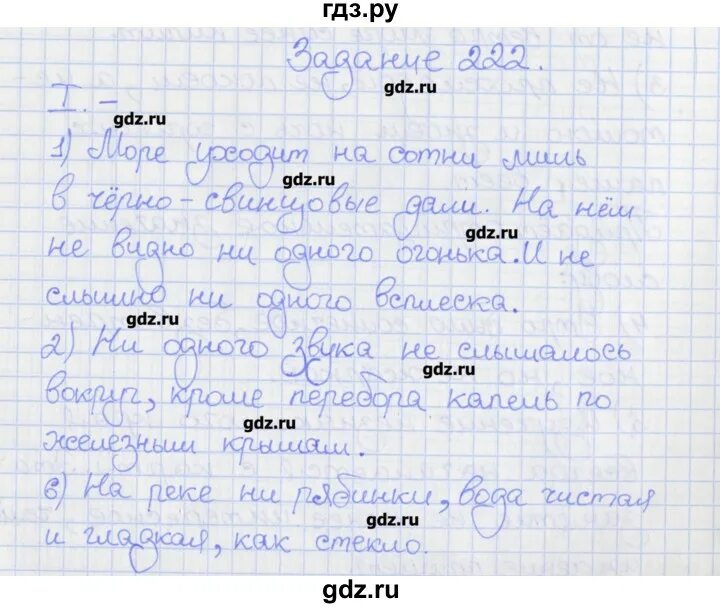 гдз.ру
Задание 222.
gdz.ru
I. –
gdz.ru
1) Море уходит на сотни миль
gdz.ru
в чёрно-свинцовые дали. На нём
gdz.ru
не видно ни одного огонька. И не
слышно ни одного всплеска.
gdz.ru
2) Ни одного звука не слышалось
gdz.ru
вокруг, кроме перебора капель по
gdz.ru
железным крышам.
6) На реке ни рябинки, вода чистая
gdz.ru
и гладкая, как стекло.
gdz.ru